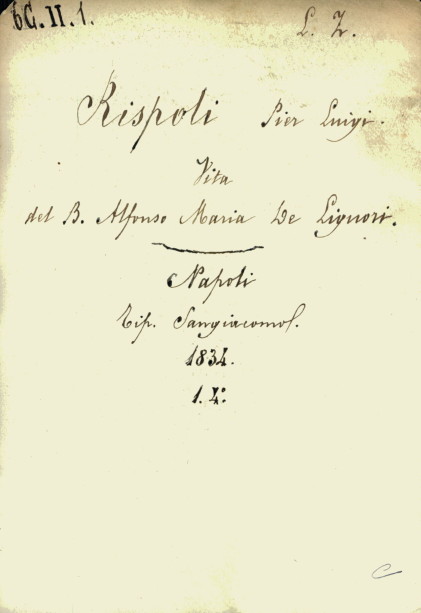 bG.II.1.
L. Z.
Rispoli Pier Luigi.
Vita
del B. Alfonso Maria De Liguori.
Napoli
Tip. Sangiacomol.
1834.
1. 4º.
C